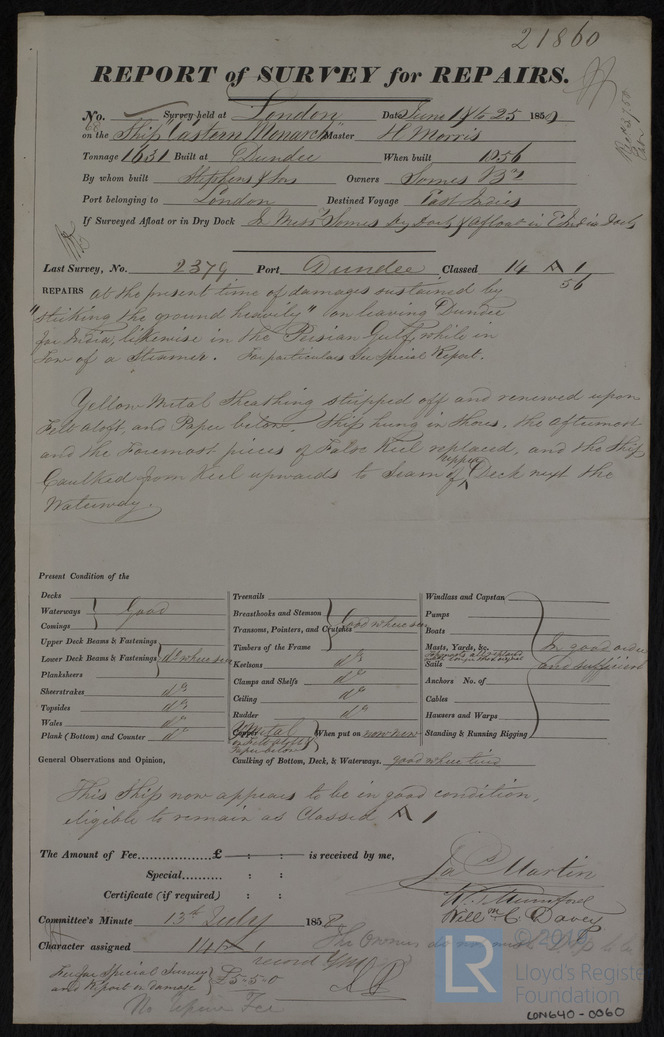 21860
REPORT of SURVEY for REPAIRS.
No. Survey held at London Date June 18 to 25 185
on the Ship "Eastern Monarch" Master H Morris
Tonnage 1631 Built at Dundee When built 1856
By whom built Stephens & Son Owners Somes Brs
Port belonging to London Destined Voyage East Indies
If Surveyed Afloat or in Dry Dock In Messrs Somes Dry Dock & Afloat in E India Dock
Last Survey, No. 2379 Port Dundee Classed 14 A 1
56
REPAIRS at the present time of damages sustained by
"striking the ground heavily" on leaving Dundee
for India, likewise in the Persian Gulf, while in
Tow of a Steamer. For particulars see Special Report.
Yellow Metal Sheathing stripped off and renewed upon
Felt aloft, and Paper below. Ship hung in shores, the aftermost
and the Foremost pieces of False Keel replaced, and the Ship
Caulked from Keel upwards to seam of upper Deck next the
Waterway.
Present Condition of the
Decks
Waterways Good
Comings
Upper Deck Beams & Fastenings
Lower Deck Beams & Fastenings do where seen
Planksheers
Sheerstrakes do
Topsides do
Wales do
Plank (Bottom) and Counter do
Treenails
Breasthooks and Stemson Good where seen
Transoms, Pointers, and Crutches
Timbers of the Frame
Keelsons do
Clamps and Shelfs do
Ceiling do
Rudder do
Copper Y Metal on Felt aloft Paper below When put on now new
Caulking of Bottom, Deck, & Waterways. good where tried
Windlass and Capstan
Pumps
Boats
Masts, Yards, &c. In good order
Sails and sufficient
Anchors No. of
Cables
Hausers and Warps
Standing & Running Rigging
General Observations and Opinion,
This Ship now appears to be in good condition,
eligible to remain as Classed A 1
The Amount of Fee £ : : is received by me,
Special : :
Certificate (if required) : :
Jas Martin
W. Mumford
Willm C. Davey
Committee's Minute 13th July 1858
Character assigned 14 A 1
The Owners do not wish
record YM
For Special Survey
and Report on damage £5-5-0
No Fee
© 2019
LR
Lloyd's Register
Foundation
LON640-0060